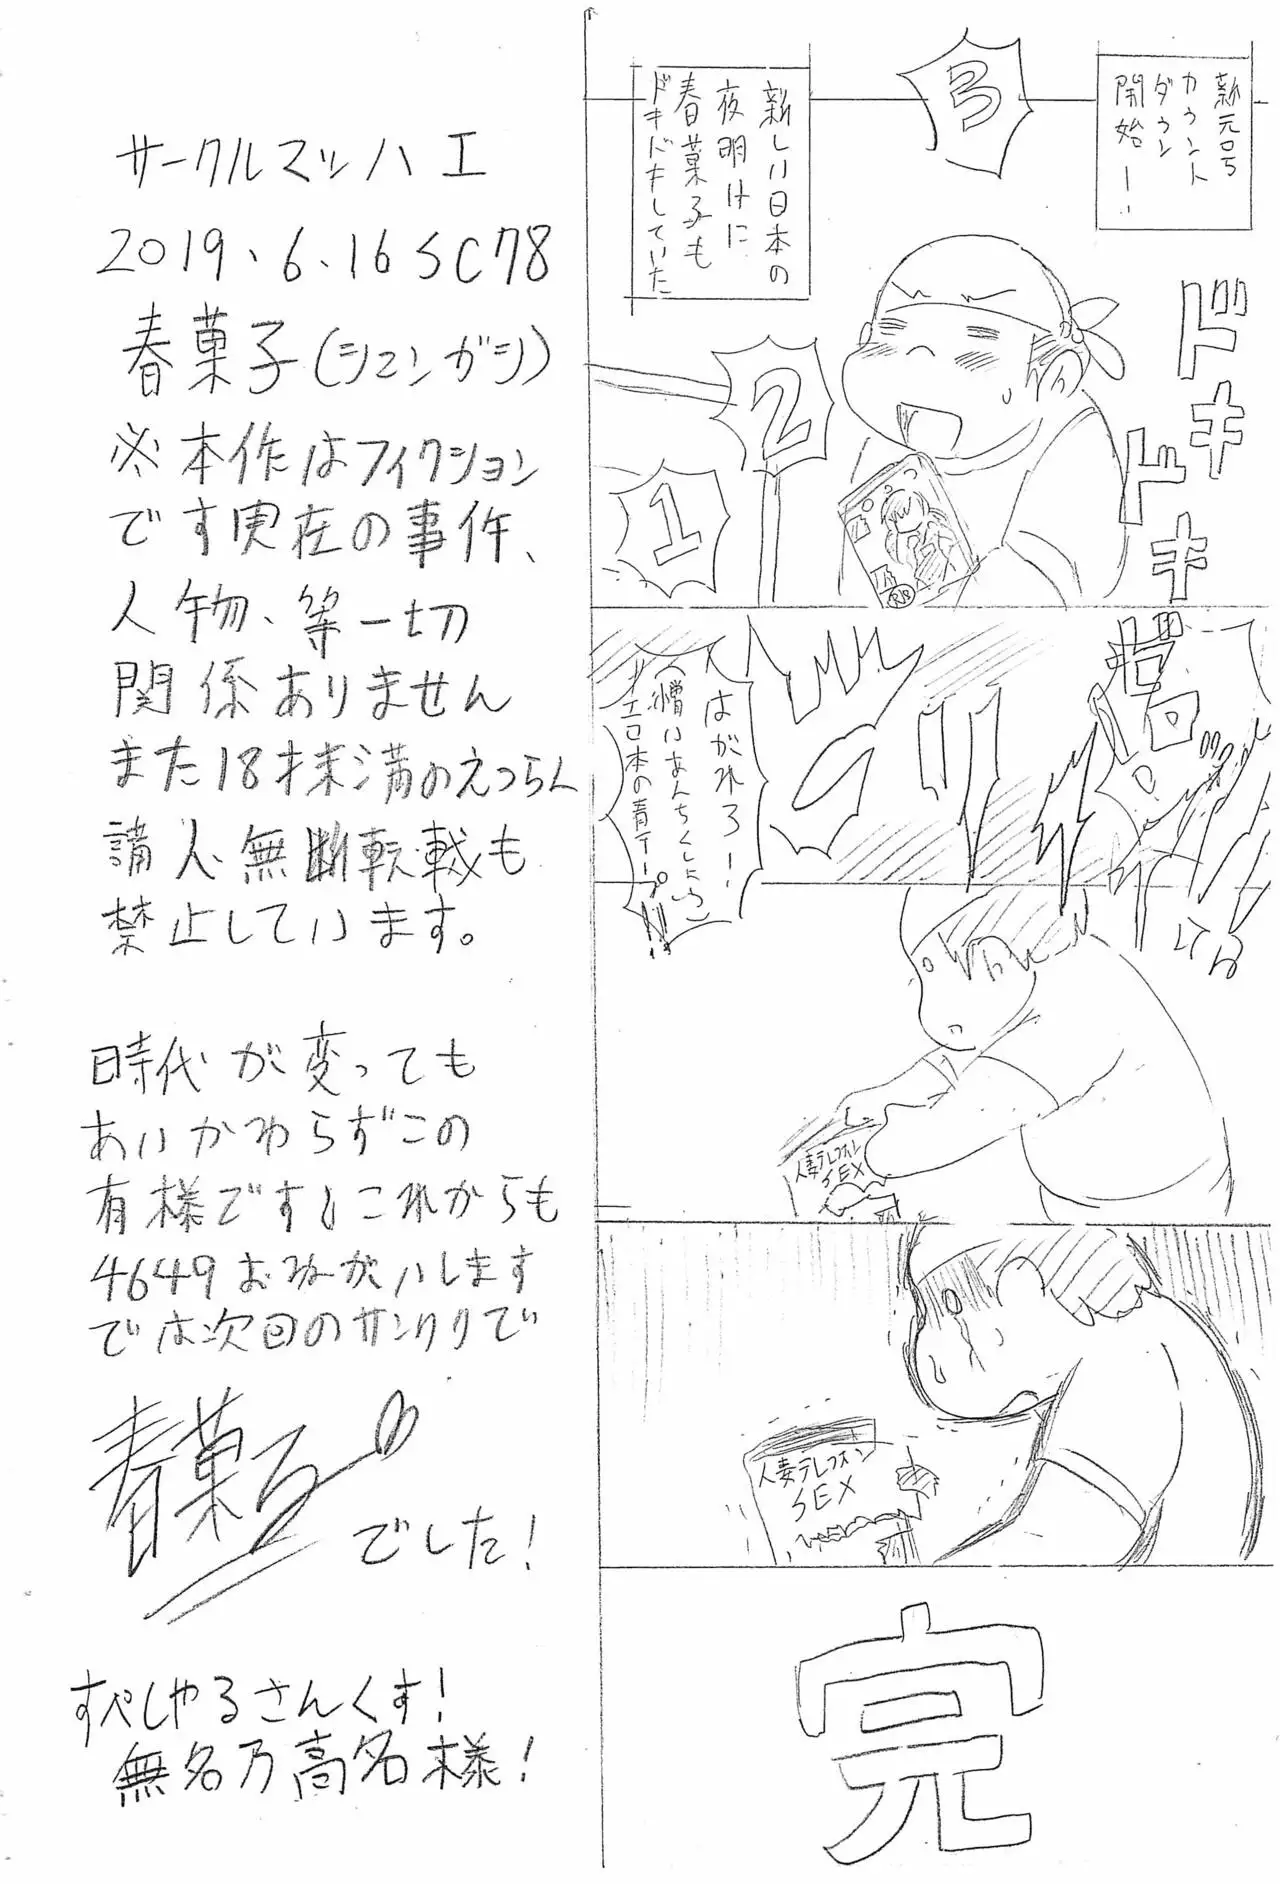 サークルマッハエ
2019、6、16 SC78
春菓子(シュンガシ)
※本作はフィクション
です実在の事件、
人物、等一切
関係ありません
また18才未満のえつらん
講入無断転載も
禁止しています。
時代が変っても
あいかわらずこの
有様ですしこれからも
4649おねがいします
では次回のサンクリで
春菓子
でした!
すぺしゃるさんくす!
無名乃高名様!
新元号
カウント
ダウン
開始ー!
3
新しい日本の
夜明けに
春菓子も
ドキドキしていた
ドキ
ドキ
2
1
はがれろー!
(憎いあんちくしょう)
エロ本の青テープ!!
人妻テレフォン
SEX
人妻テレフォン
SEX
完